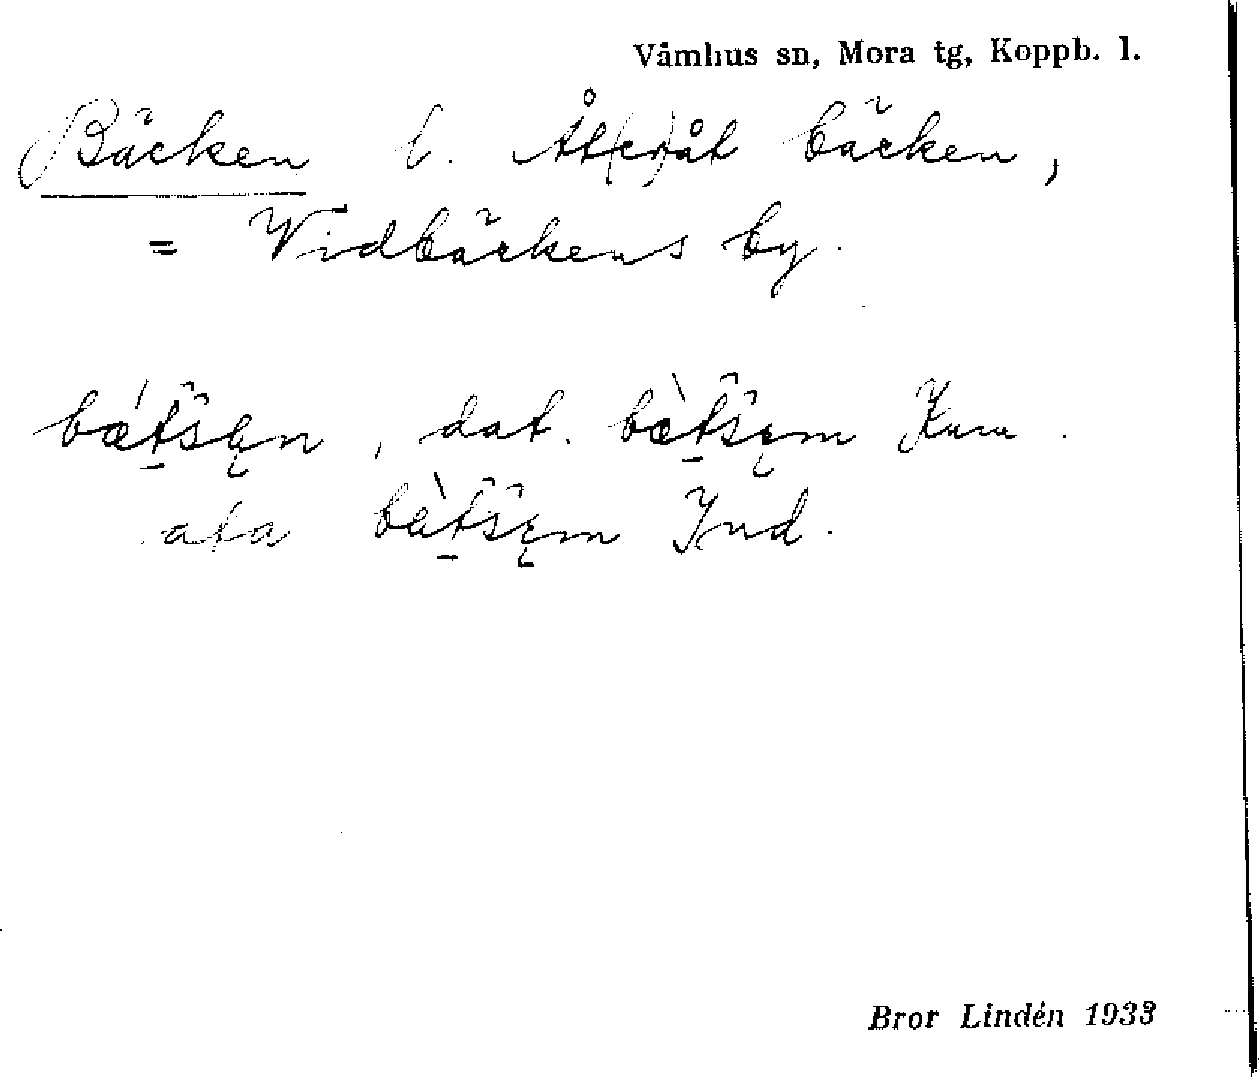 Våmhus sn, Mora tg, Koppb. l.
Bäcken l. Åt(er)åt bäcken,
= Vidbäckens by.
bǽtšen, dat. bæ̀tšem
ata bàtšem Ind.
Bror Lindén 1933